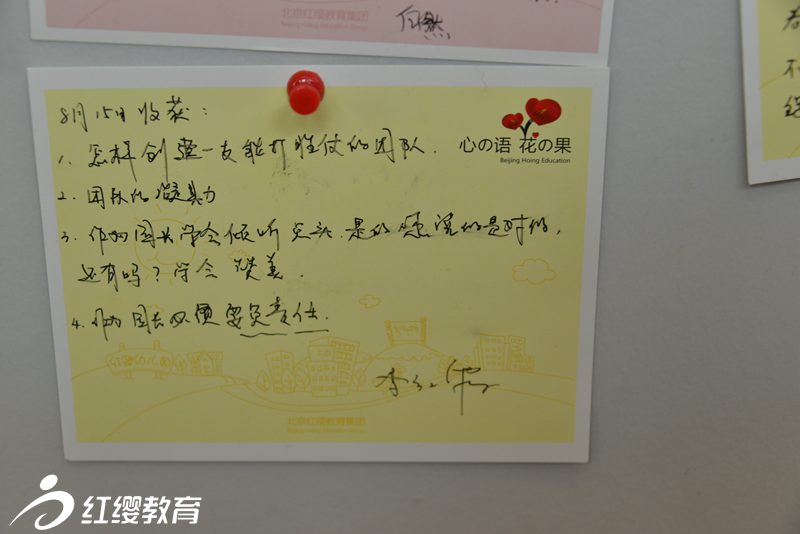 北京红缨教育集团
Beijing Hoing Education Group
自然
8月15日收获：
心の语 花の果
Beijing Hoing Education
1. 怎样创造一支能打胜仗的团队.
2. 团队的凝具力
3. 作为园长学会倾听 点头 是的 您说的是对的，
还有吗？学会 赞美.
4. 作为园长必须要负责任.
红缨幼儿园
李红
北京红缨教育集团
Beijing Hoing Education Group
红缨教育